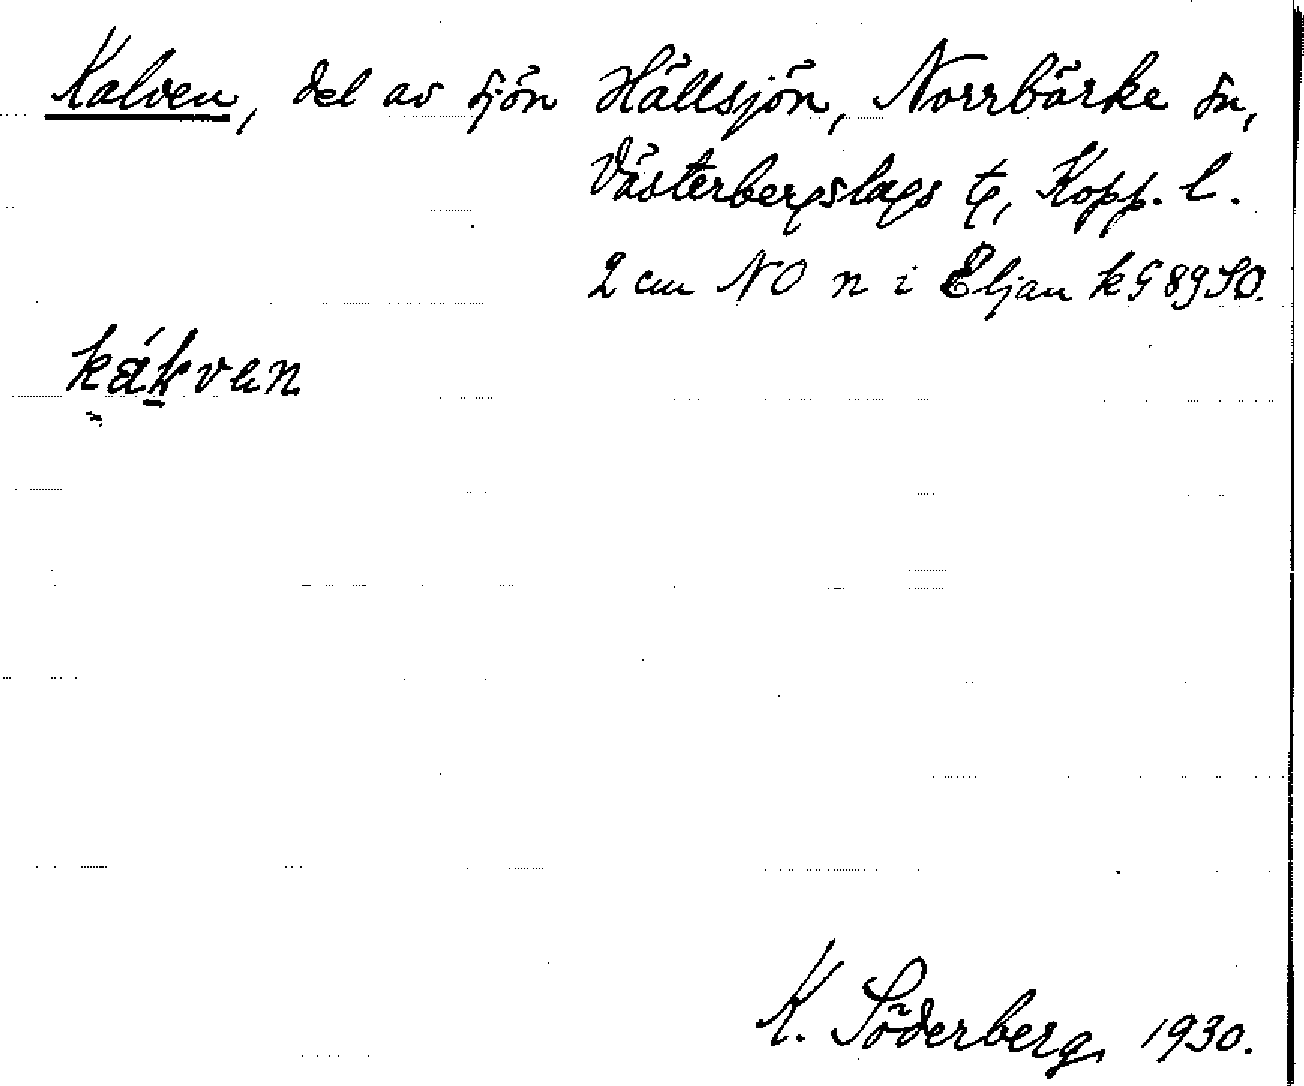 Kalven, del av sjön Hällsjön, Norrbärke sn,
Västerbergslags tg, Kopp. l.
2 cm NO n i Eljan k G 89 SO.
kákven
K. Söderberg, 1930.